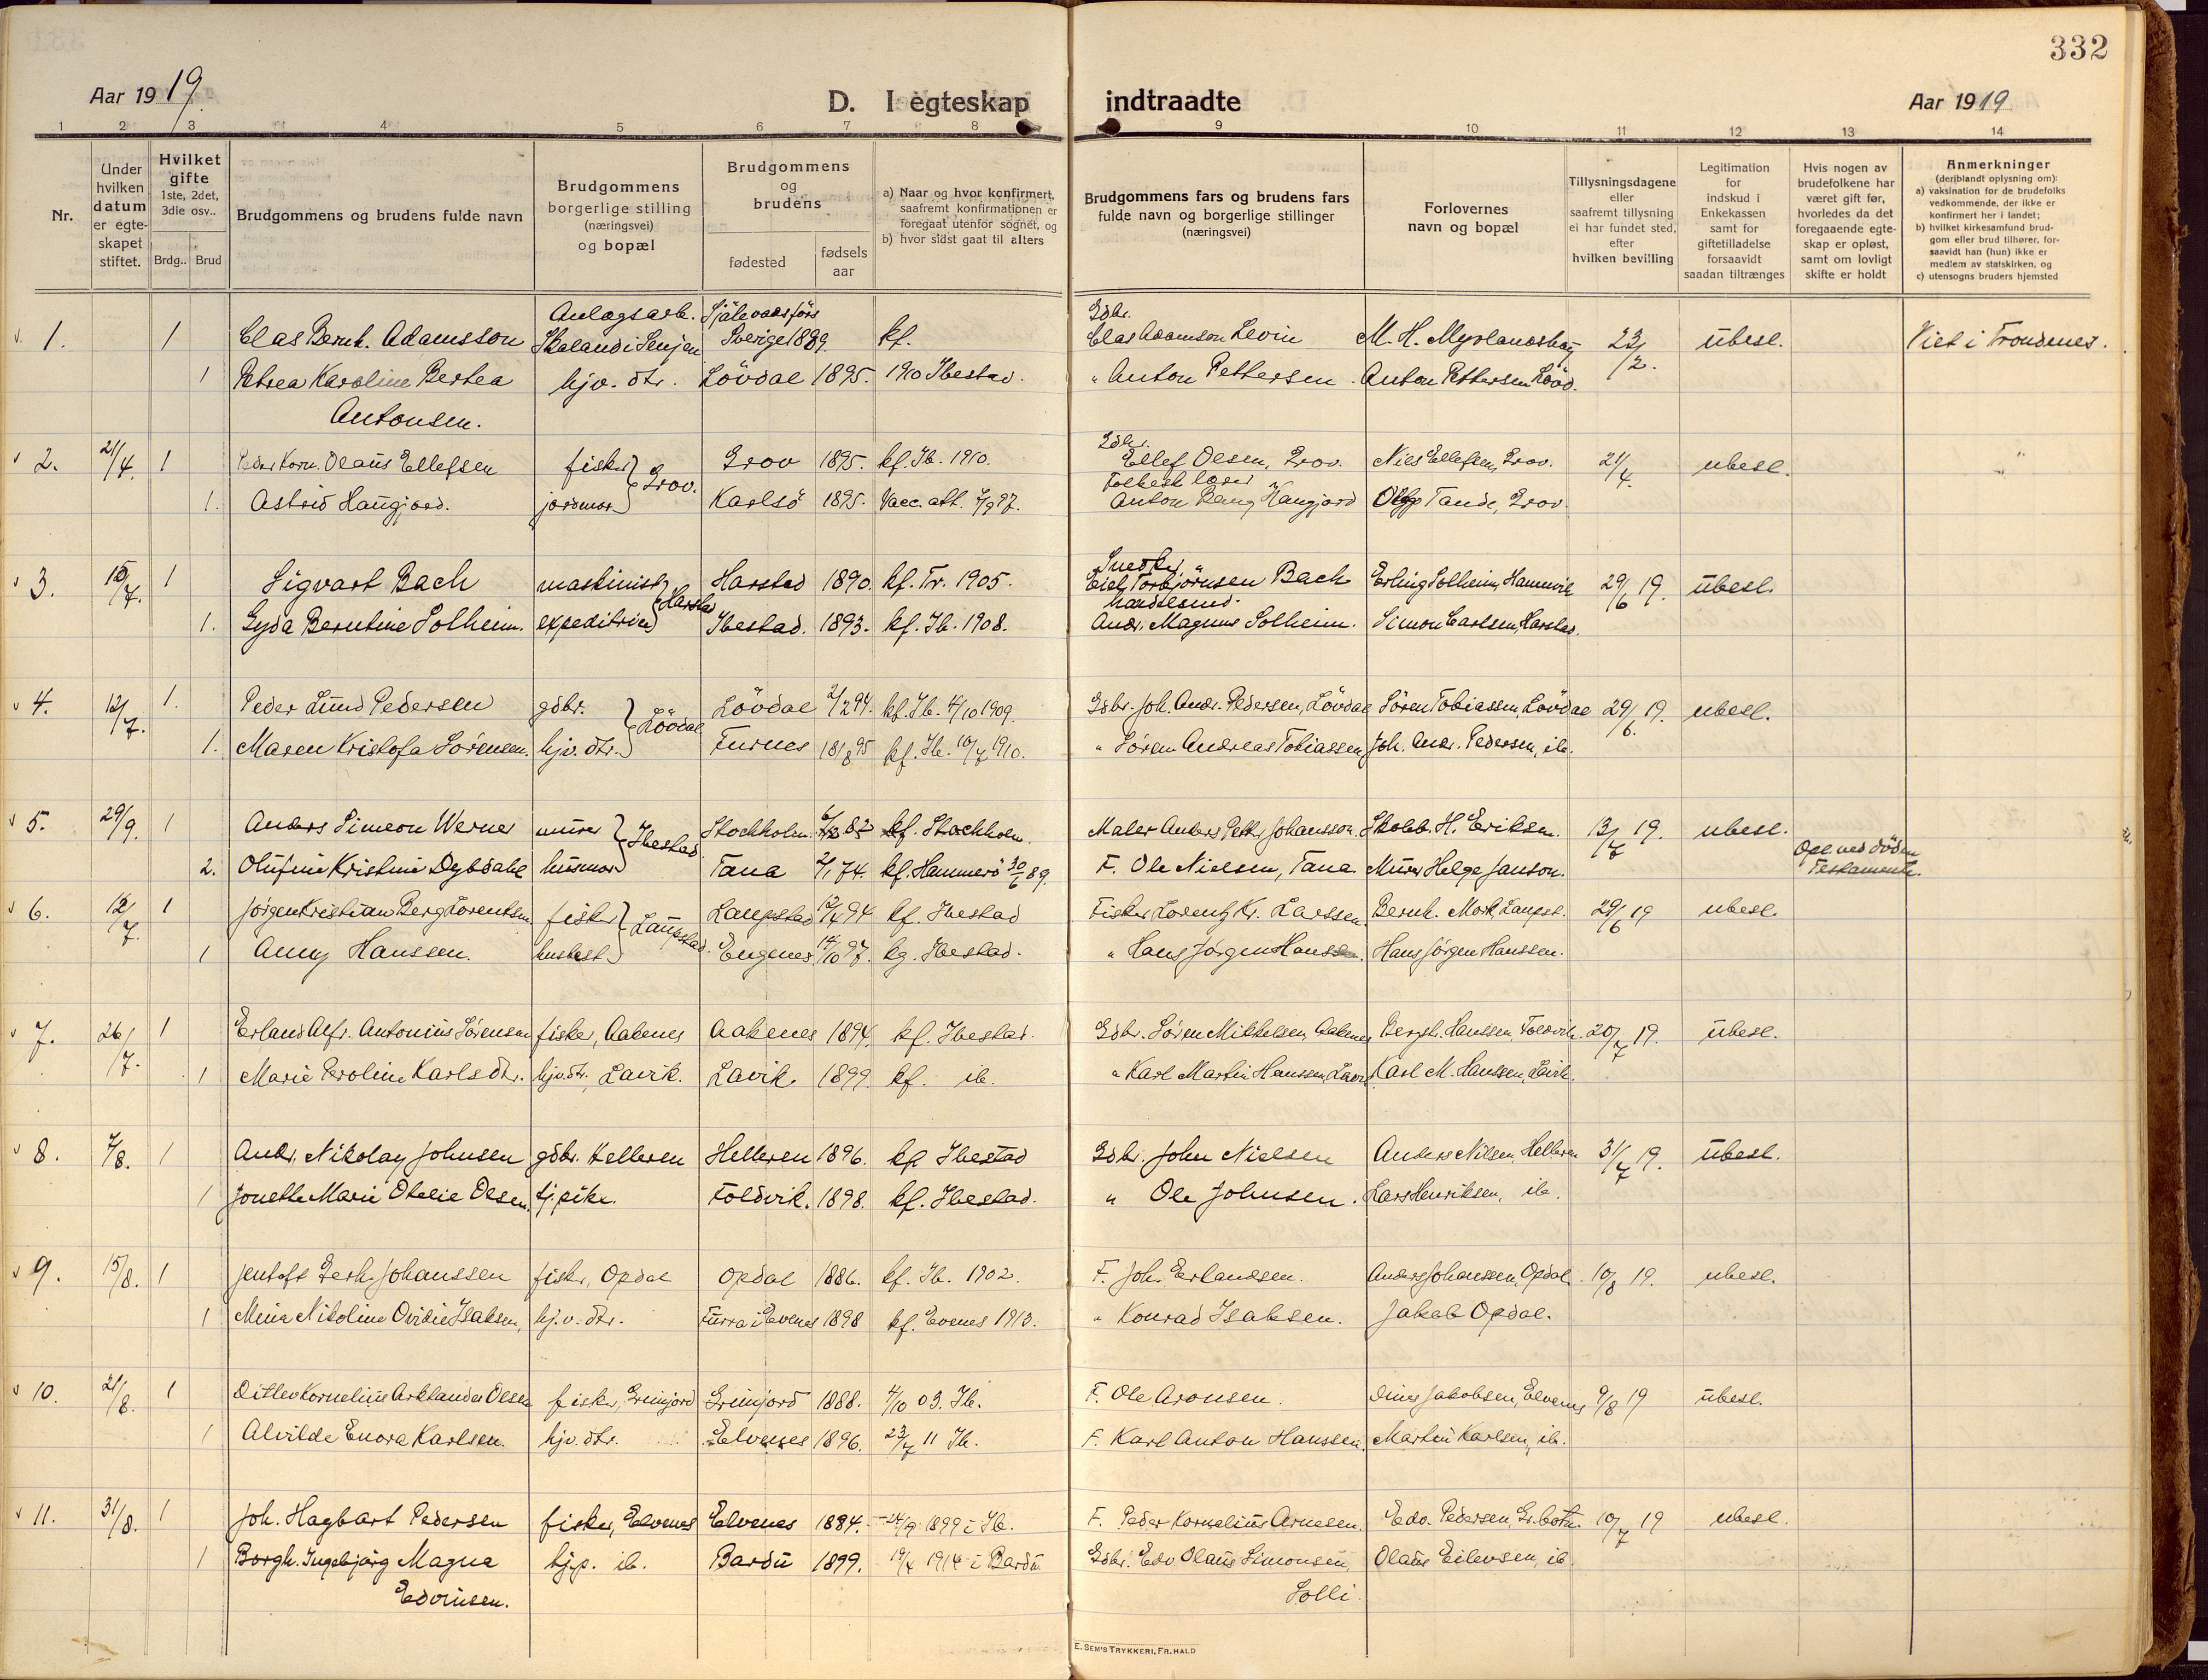 332
Aar 1919
D. I egteskap indtraadte
Aar 1919
1 2 3 4 5 6 7 8 9 10 11 12 13 14
Nr.
Under hvilken datum er egteskapet stiftet.
Hvilket gifte 1ste, 2det, 3die osv..
Brdg.. Brud
Brudgommens og brudens fulde navn
Brudgommens borgerlige stilling (næringsvei) og bopæl
Brudgommens og brudens
fødested
fødsels aar
a) Naar og hvor konfirmert, saafremt konfirmationen er foregaat utenfor sognet, og
b) hvor sidst gaat til alters
Brudgommens fars og brudens fars fulde navn og borgerlige stillinger (næringsvei)
Forlovernes navn og bopæl
Tillysningsdagene eller saafremt tillysning ei har fundet sted, efter hvilken bevilling
Legitimation for indskud i Enkekassen samt for giftetilladelse forsaavidt saadan tiltrænges
Hvis nogen av brudefolkene har været gift før, hvorledes da det foregaaende egteskap er opløst, samt om lovligt skifte er holdt
Anmerkninger (deriblandt oplysning om):
a) vaksination for de brudefolks vedkommende, der ikke er konfirmert her i landet;
b) hvilket kirkesamfund brudgom eller brud tilhører, forsaavidt han (hun) ikke er medlem av statskirken, og
c) utensogns bruders hjemsted
Anlægsarb. Gdbr.
1. 1 Clas Bernh. Adamsson Skaland i Senjen Sverige 1889. kf. Clas Adamson Levin M. H. Myrlandshaug 23/2. ubesl. Viet i Trondenes.
1 Petrea Karoline Bertea hjv. dtr. Lövdal 1895. 1910 Ibestad. " Anton Pettersen. Anton Pettersen
Antonsen.
Gdbr.
2. 21/4. 1 Peder Korn. Olaus Ellefsen fisker Grov. Grov 1895. kf. Ib. 1910. Ellef Olsen, Grov. Nils Ellefsen, Grov. 21/4. ubesl. "
1. Astrid Haugjord. jordmor Karlsö 1895. Vacc. att. Anton Haugjord Tande, Grov.
Snedker
3. 15/7. 1 Sigvart Bach maskinist Harstad Harstad 1890. kf. Tr. 1905. Torbjörnsen Bach Erling Solheim, Hamnvik 29/6 19. ubesl.
handelsmd.
1. Gyda Berntine Solheim. expeditrice Ibestad. 1893. kf. Ib. 1908. Andr. Magnus Solheim. Simon Carlsen, Harstad.
4. 12/7. 1. Peder Lund Pedersen gdbr. Lövdal Lövdal 2/2 94. kf. Ib. 4/10 1909. Gdbr. Joh. Andr. Pedersen, Lövdal Sören Tobiassen, Lövdal 29/6. 19. ubesl.
1. Maren Kristofa Sörensen. hjv. dtr. Furnes 18/8 95 kf. Ib. 10/7 1910. " Sören Andreas Tobiassen Joh. Andr. Pedersen, ib.
5. 29/9. 1 Anders Simeon Werner murer Ibestad Stockholm. 83 kf. Stockholm. Maler Anders Petter Johansson. Skoleb. H. Eriksen. 13/7 19. ubesl.
2. Olufine Kristine Dybdahl husmor Tana 2/1 74. kf. Hammerö 30/6 89. F. Ole Nielsen, Tana. Murer Helge Janson. Opl. ved döden Testamente.
6. 12/7. 1 Jörgen Kristian Berg Lorentsen fisker Laupstad. Laupstad 12/4 94 kf. Ibestad Fisker Lorentz Kr. Larssen Bernh. Mork, Laupst. 29/6 19 ubesl.
1 Anny Hanssen. husbest. Engenes 14/10 97. kf. Ibestad. " Hans Jörgen Hanssen. Hans Jörgen Hanssen.
7. 26/7. 1 Erland Alfr. Antonius Sörensen fisker, Aakenes Aakenes 1894. kf. Ibestad. Gdbr. Sören Mikkelsen, Aakenes Bergit. Hanssen, Foldvik 20/7 19. ubesl.
1 Marie Peroline Karlsdtr. hjv. dtr. Lavik. Lavik. 1899. kf. ib. " Karl Martin Hanssen, Lavik Karl M. Hanssen, Lavik.
8. 7/8. 1 Andr. Nikolay Johnsen gdbr. Helleren Helleren 1896. kf. Ibestad Gdbr. John Nielsen Anders Nilsen, Helleren 31/7 19. ubesl.
1 Jonette Marie Otelie Olsen. tj. pike. Foldvik. 1898. kf. Ibestad. " Ole Johnsen. Lars Henriksen, ib.
9. 15/8. 1 Jentoft Gerh. Johanssen fisker, Opdal Opdal 1886. kf. Ib. 1902. F. Joh. Erlandsen. Anders Johanssen, Opdal. 10/8 19. ubesl.
1 Mina Nikoline Ovidie Isaksen, hj. v. dtr. Furra i Evenes 1898 kf. Evenes 1913. " Konrad Isaksen. Jakob Opdal.
10. 21/8. 1 Ditlev Kornelius Arklander Olsen fisker, Grinjord Grinjord 1888. 4/10 03. Ib. F. Ole Aronsen. Jakobsen, Elvenes 9/8 19 ubesl.
1 Alvilde Enora Karlsen. hjv. dtr. Elvenes 1896. 23/7 11 Ib. F. Karl Anton Hanssen. Martin Karlsen, ib.
11. 31/8. 1 Joh. Hagbart Pedersen fisker, Elvenes Elvenes 1884. 24/9 1899 i Ib. F. Peder Kornelius Arnesen. Edv. Pedersen, Gr.botn. 10/7 19 ubesl.
1 Borgh. Ingebjörg Magna hjp. ib. Bardu 1899. 19/7 1914 i Bardu. Gdbr. Edv. Olaus Simonsen, Olaus Eilevsen, ib
Edvinsen. Solli.
E. SEM'S TRYKKERI, FR.HALD